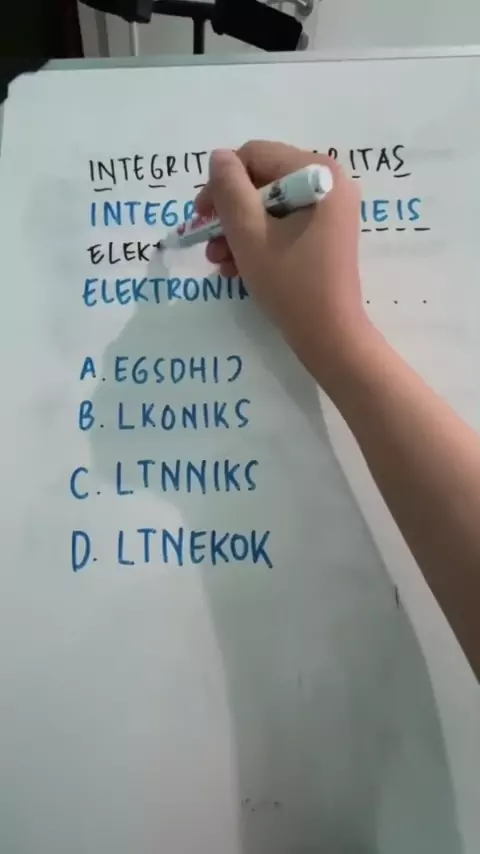 INTEGRIT ITAS
INTEG IEIS
ELEK
ELEKTRONIK . . .
A. EGSDHIJ
B. LKONIKS
C. LTNNIKS
D. LTNEKOK